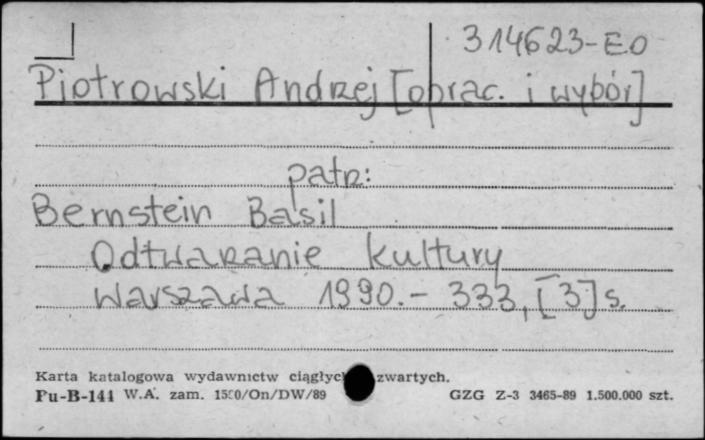 314623-E.O
Piotrowski Andrzej [oprac. i wybór]
patrz:
Bernstein Basil
Odtwarzanie kultury
Warszawa 1990.- 333, [3] s.
Karta katalogowa wydawnictw ciągłyc zwartych.
Pu-B-141 W.A. zam. /On/DW/89 GZG Z-3 3465-89 1.500.000 szt.